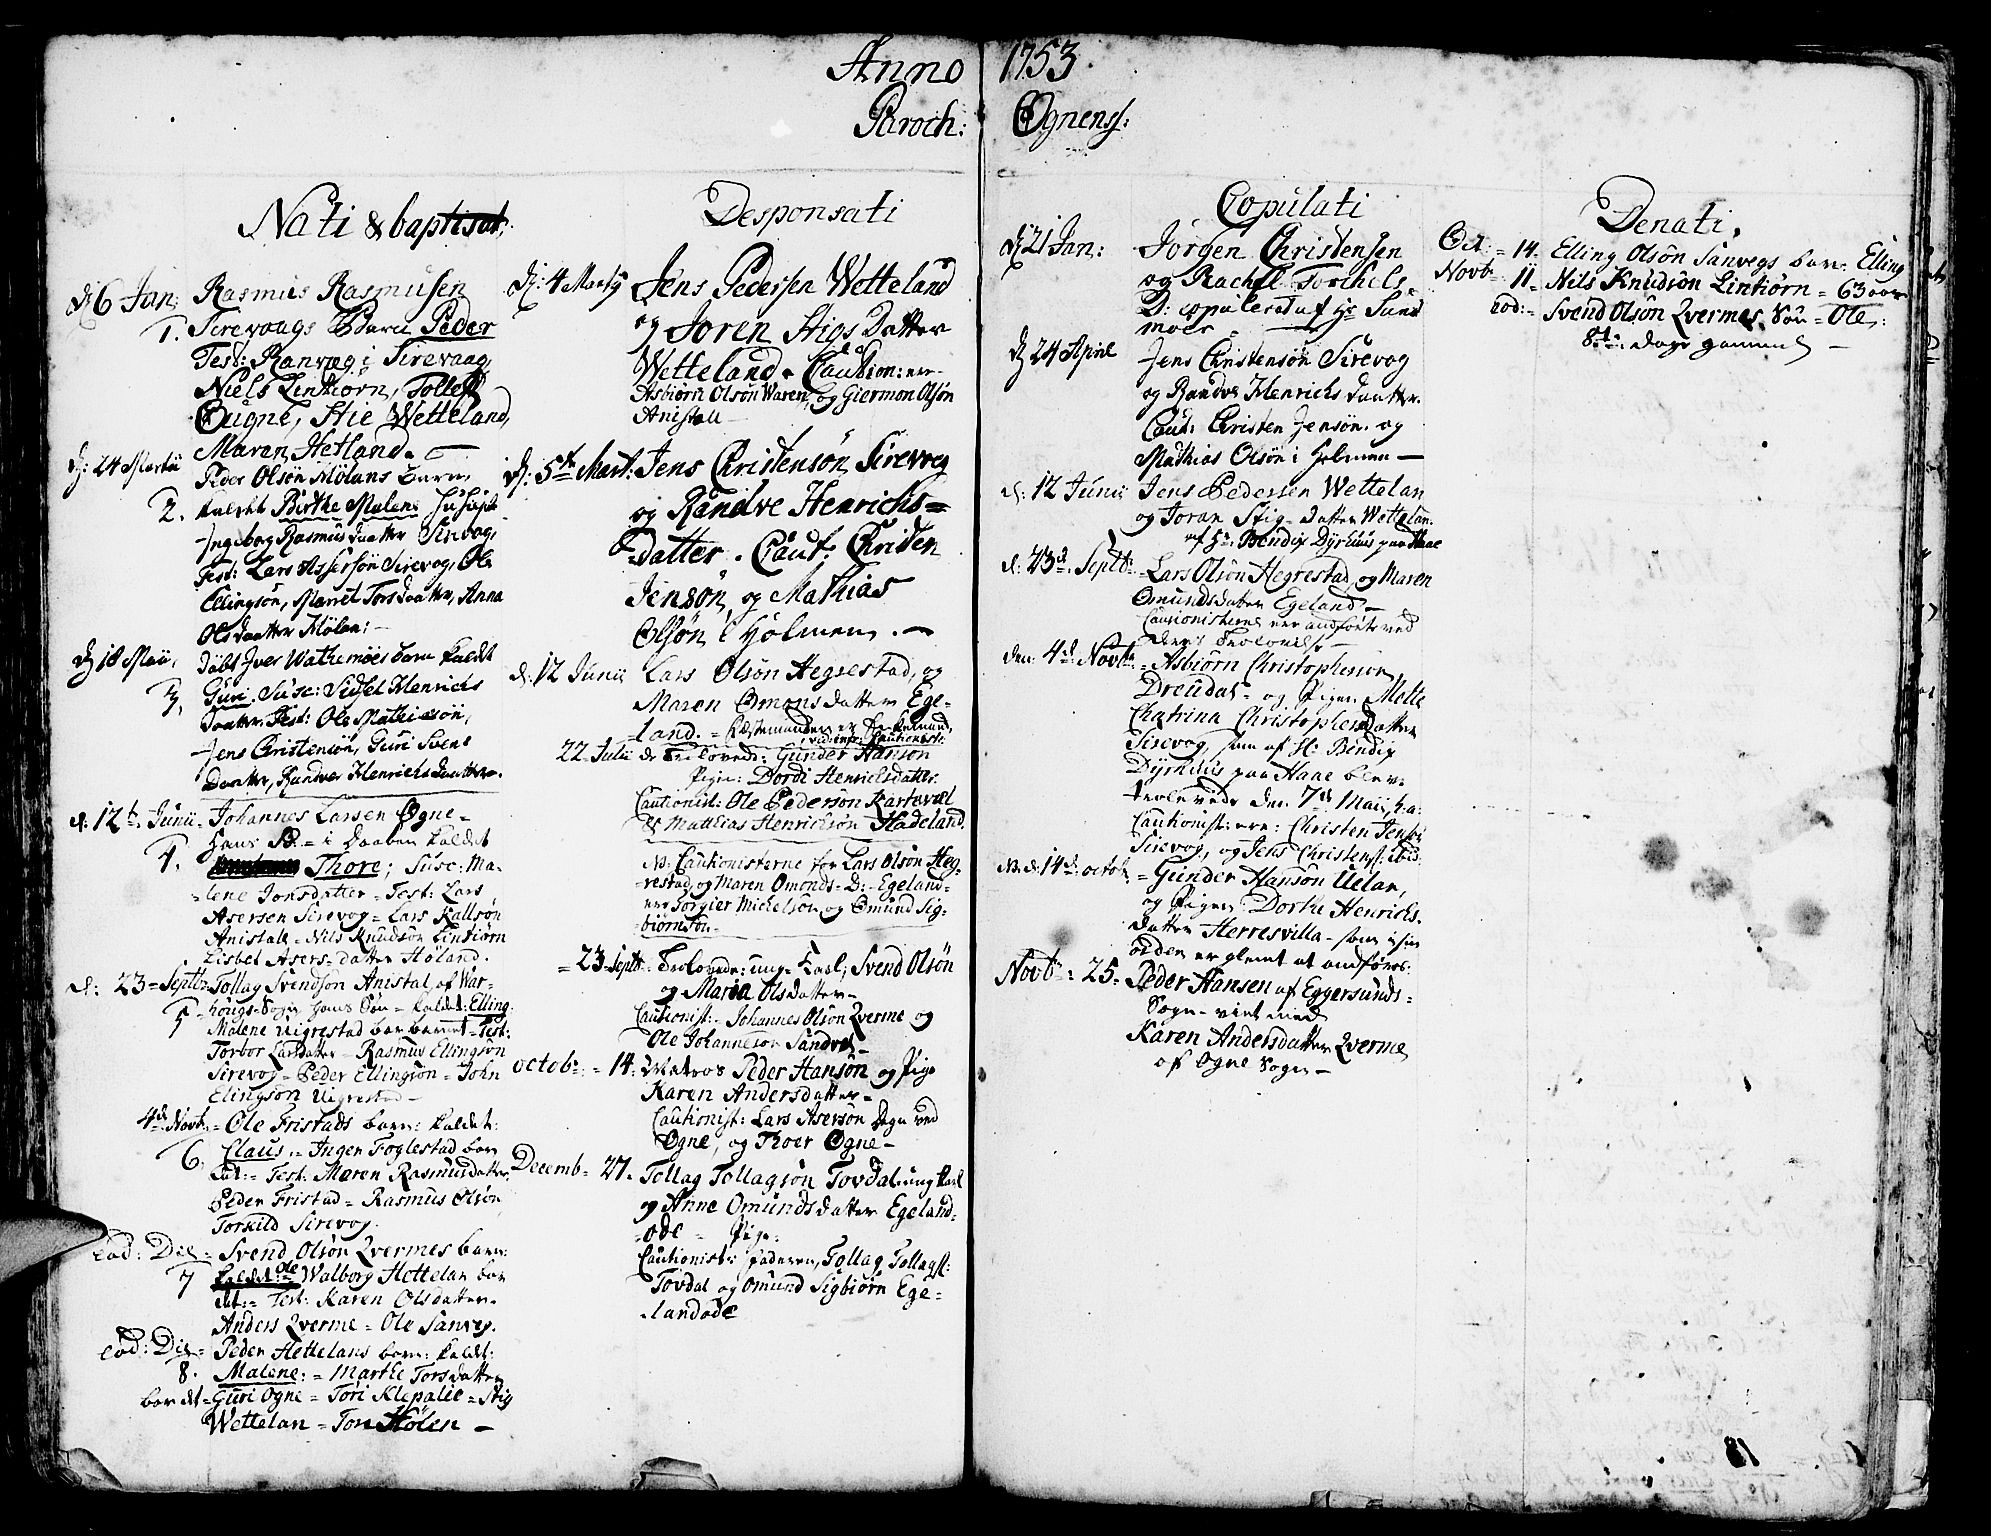 Anno 1753
Paroch: Ognens:
Nati & baptisat.
d. 6 Jan: Rasmus Rasmusen
1. Sirevaags Barn Peder
Test: Ranvæg i Sirevaag
Niels Lintiørn, Tollef
Ougne, Stie Wetteland,
Maren Hetland.
d: 24 Martii Peder Olsøn Mølans barn
2. kaldet Birthe Malene
Ingebor Rasmusdaatter Sirevog,
Test: Lars Assersøn Sirevog, Ole
Ellingsøn, Marret Torsdaatter, Anna
Olsdaatter Mølen:
d. 18 Maii, døbt Iver Wathemöes barn kaldt
3. Guri. Susc: Sidsel Henrichs
daatter. Test: Ole Mathiasøn,
Jens Christensøn, Guri Svens
Daatter, Randver Henrichsdaatter.
d. 12t. Junii. Johannes Larsen Ogne
hans B. i daaben kaldet
4. Thore; Susc: Ma-
lene Jonsdatter = Test: Lars
Asersen Sirevog = Lars Kallsøn
Anistall = Nils Knudsøn Lintiørn
Lisbet Asersdatter Høland.
d: 23 Septb: Tollag Svendsøn Anistal, af War-
5 houg-Sogn hans Søn = kaldet: Elling.
Malene Uigrestad bar barnet = Test:
Torbor Larsdatter = Rasmus Ellingsøn
Sirevog = Peder Ellingsøn = John
Elingsøn Uigrestad
4d. Novb: = Ole Fristads barn: kaldet:
6. Claus = Inger Foglestad bar
det: Test: Maren Rasmusdatter
Peder Fristad = Rasmus Olsøn
Torkild Sirevog.
Eod: Die = Svend Olsøn Qvermes barn:
7 kaldet: Ole Walborg Hettelan bar
det: = Test: Karen Olsdatter.
Anders Qverme = Ole Sanveg.
Eod: Die = Peder Hettelans barn: kaldt:
8. Malene: = Marthe Torsdatter
bar det = Guri Ogne = Tori Klepalie = Stig
Wettelan = Tor Hølen
Desponsati
d: 4 Martij Jens Pedersen Wetteland
og Joren Stigs Datter
Wetteland. Caution: ere
Asbiørn Olsøn Waren, og Giermon Olsøn
Anistall
d: 5te Mart: Jens Christensøn Sirevog
og Randve Henrichs=
datter. Caut. Christen
Jensøn, og Mathias
Olsøn i Holmen.
d: 12 Junii Lars Olsøn Hegrestad, og
Maren Omonsdatter Ege-
land.
22 Julii de Trolovede: Gunder Hanson
Pige: Dordi Henrichsdatter.
Cautionist: Ole Pedersøn Kartevæl
& Matthias Henrichsøn Hadeland.
NB: Cautionisterne for Lars Olsøn Heg-
restad, og Maren Omonds-D: Egeland
ere Torgier Michelsøn, og Omund Sig-
biørnsøn.
= 23 Septb: Trolovede: ung Karl; Svend Olsøn
og Maria Olsdatter
Cautionist: = Johannes Olsøn Qverme og
Ole Johanneson Sandved
octob: = 14: Matros Peder Hansøn og Pige
Karen Andersdatter
Cautionist: Lars Asersøn Degn ved
Ogne, og Thoer Ogne
Decemb = 27. Tollag Tollagsøn Tovdal ung karl
og Anne Omundsdatter Egeland-
øde = Pige:
Cautionister faderen, Tollag Tollags:
Tovdal og Omund Sigbiørn Ege-
landøde
Copulati
d. 21 Jan: Jørgen Christensen
og Rachel Torkels
D: copuleret af Hr Sand
moer
d. 24 April Jens Christensøn Sirevog
og Randve Henrichsdaatter.
Caut: Christen Jensøn. og
Mathias Olsøn i Holmen
d. 12 Junii Jens Pedersen Wettelan
og Joran Stigdatter Wettelan.
af Hr. Bendix Dyrhuus paa Haae
d: 23d. Septb: Lars Olsøn Hegrestad, og Maren
Omundsdatter Egeland
Cautionisterne ere andførte ved
deres Trolovelse
den 4d. Novb: = Asbiørn Christophersen
Dreudal = og Pigen Mette
Chatrina Christophersdatter
Sirevog, som af H: Bendix
Dyrhuus paa Haae blev
trolovede den 7de Maij h.a:
Cautionist: ere: Christen Jensøn
Sirevog, og Jens Christens: ibid:
NB. d. 14d. octob: = Gunder Hansøn Uelan,
og Pigen Dorthe Henrichs
datter Herresvilla = som i sin
orden er glemt at andføres:
Novb: 25 = Peder Hansen af Eggersunds=
Sogn = viet med
Karen Andersdatter Qverme
af Ogne Sogn
Denati.
Oct: = 14. Elling Olsøn Sanvegs barn: Elling
Novb: 11 = Nils Knudsøn Lintiørn = 63 aar
Eod: = Svend Olsøn Qvermes Søn = Ole:
8te dage gammel
18